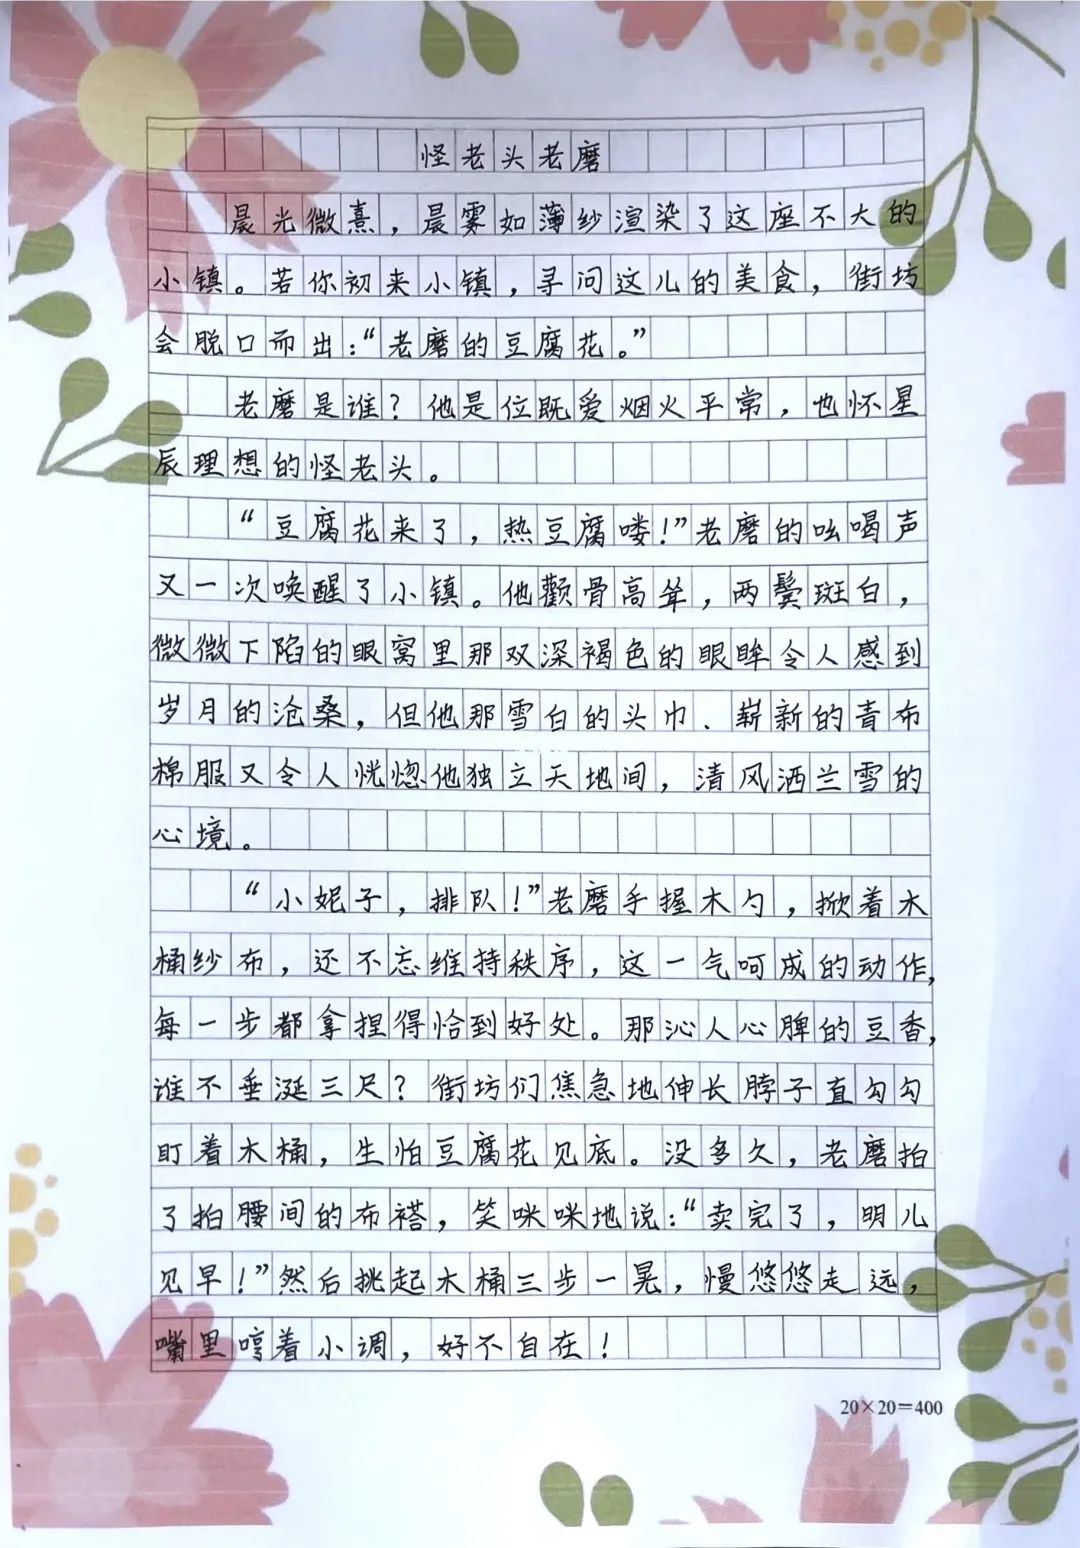 怪老头老磨
晨光微熹，晨雾如薄纱渲染了这座不大的
小镇。若你初来小镇，寻问这儿的美食，街坊
会脱口而出：“老磨的豆腐花。”
老磨是谁？他是位既爱烟火平常，也怀星
辰理想的怪老头。
“豆腐花来了，热豆腐喽！”老磨的吆喝声
又一次唤醒了小镇。他颧骨高耸，两鬓斑白，
微微下陷的眼窝里那双深褐色的眼眸令人感到
岁月的沧桑，但他那雪白的头巾、崭新的青布
棉服又令人恍惚他独立天地间，清风洒兰雪的
心境。
“小妮子，排队！”老磨手握木勺，掀着木
桶纱布，还不忘维持秩序，这一气呵成的动作，
每一步都拿捏得恰到好处。那沁人心脾的豆香，
谁不垂涎三尺？街坊们焦急地伸长脖子直勾勾
盯着木桶，生怕豆腐花见底。没多久，老磨拍
了拍腰间的布褡，笑咪咪地说：“卖完了，明儿
见早！”然后挑起木桶三步一晃，慢悠悠走远，
嘴里哼着小调，好不自在！
20×20=400